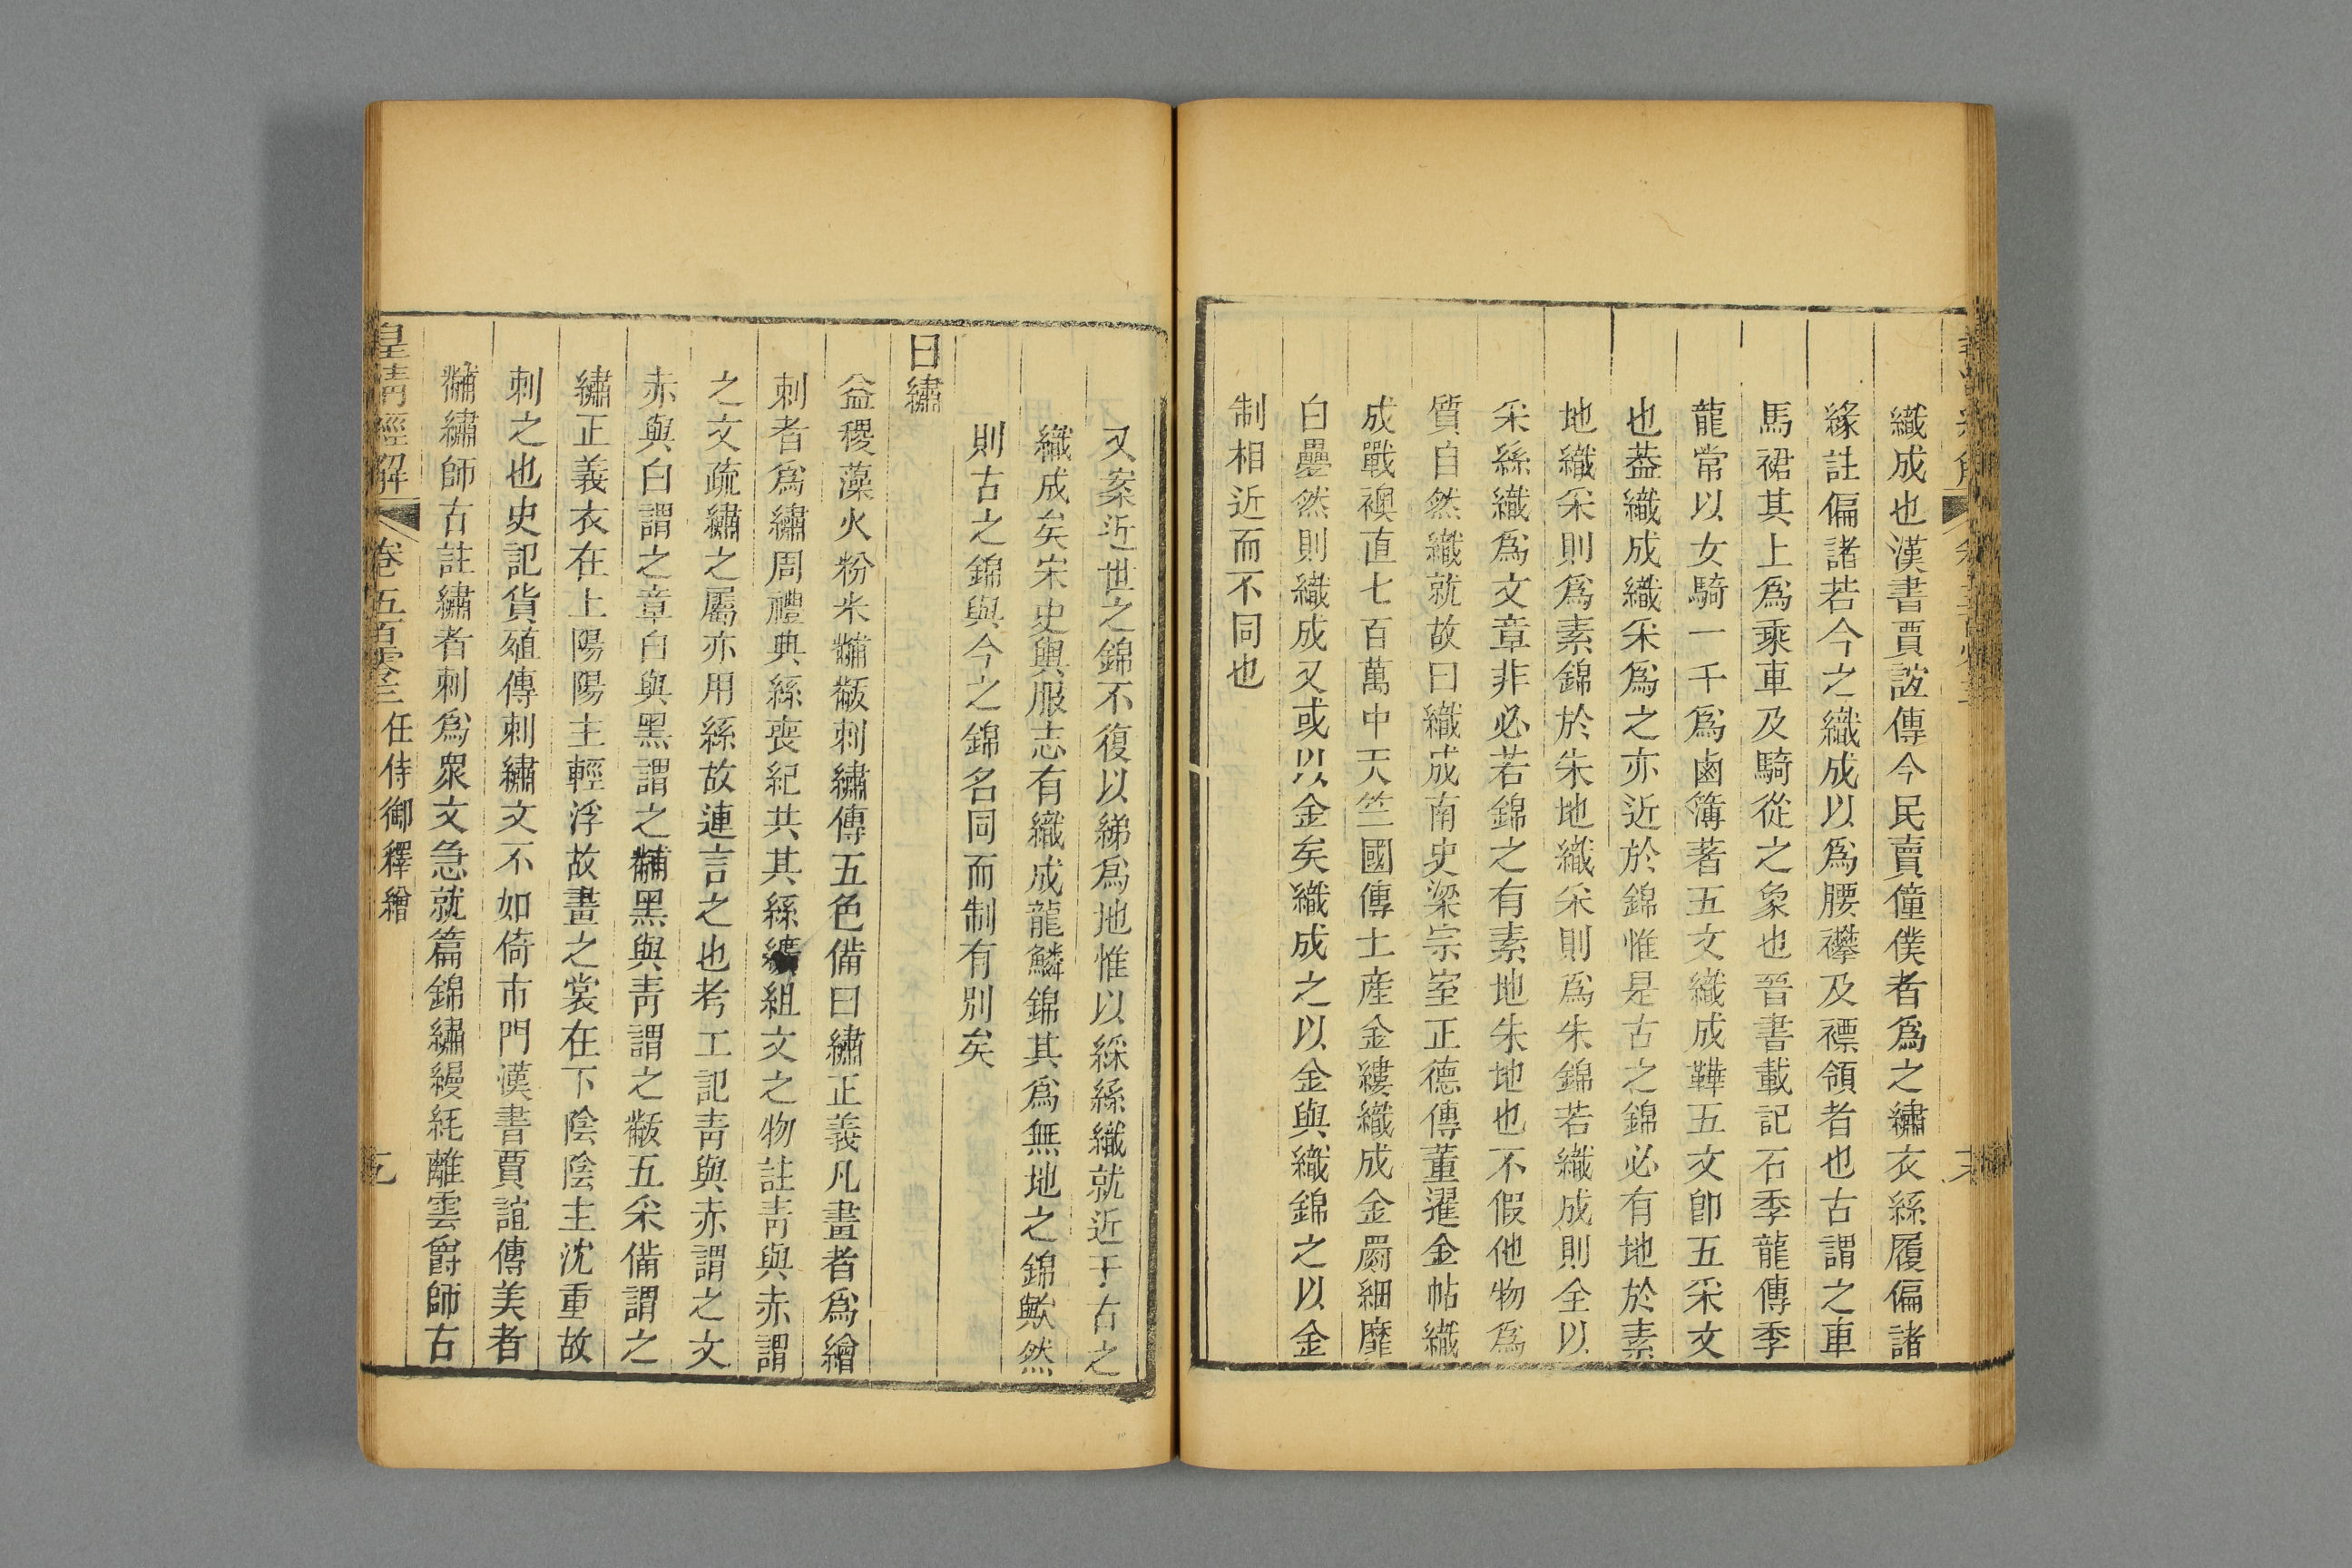 織成也漢書賈誼傳今民賣僮僕者爲之繡衣絲履偏諸
緣註偏諸若今之織成以爲腰襻及褾領者也古謂之車
馬裙其上爲乘車及騎從之象也晉書載記石季龍傳季
龍常以女騎一千爲鹵簿著五文織成鞾五文卽五采文
也葢織成織采爲之亦近於錦惟是古之錦必有地於素
地織采則爲素錦於朱地織采則爲朱錦若織成則全以
采絲織爲文章非必若錦之有素地朱地也不假他物爲
質自然織就故曰織成南史梁宗室正德傳董暹金帖織
成戰襖直七百萬中天竺國傳土産金縷織成金罽細靡
白疊然則織成又或以金矣織成之以金與織錦之以金
制相近而不同也
又案近世之錦不復以綈爲地惟以綵絲織就近于古之
織成矣宋史輿服志有織成龍鱗錦其爲無地之錦歟然
則古之錦與今之錦名同而制有別矣
曰繡
益稷藻火粉米黼黻刺繡傳五色備曰繡正義凡畫者爲繪
刺者爲繡周禮典絲喪紀共其絲纊組文之物註靑與赤謂
之文疏繡之屬亦用絲故連言之也考工記靑與赤謂之文
赤與白謂之章白與黑謂之黼黑與靑謂之黻五采備謂之
繡正義衣在上陽陽主輕浮故畫之裳在下陰陰主沈重故
刺之也史記貨殖傳刺繡文不如倚市門漢書賈誼傳美者
黼繡師古註繡者刺爲衆文急就篇錦繡縵紝離雲爵師古
皇淸經解 卷五百零三 任侍御釋繒